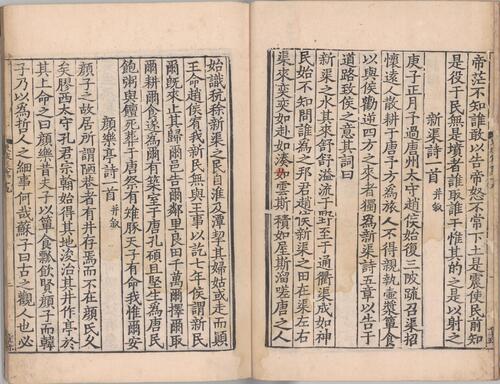 帝茫不知誰敢以告帝怒不常下土是震使民前知
是役于民無是墳者誰取誰干惟其的之是以射之
新渠詩一首 并敘
庚子正月子過唐州太守趙侯始復三陂疏召渠招
懷遠人散耕于唐子方為旅人不得親執壺漿簞食
以與侯勸逆四方之來者獨為新渠詩五章以告于
道路致侯之意其詞曰
新渠之水其來舒舒溢流于野至于通衢渠成如神
民始不知問誰為之邦君趙侯新渠之田在渠左右
渠來奕奕如赴如湊如雲斯積如屋斯溜嗟唐之人
始識秔稌新渠之民自淮及潭挈其婦姑或走而顛
王命趙侯宥我新民無與王事以訖七年侯謂新民
爾既來止其歸爾邑告爾鄰里良田千萬爾擇爾取
爾耕爾食遂為爾有築室于唐孔碩且堅生為唐民
飽粥與饘死葬于唐祭有雞豚天子有命我惟爾安
顏樂亭詩一首 并敘
顏子之故居所謂陋巷者有井存焉而不在顏氏久
矣膠西大守孔君宗翰始得其地浚治其井作亭於
其上命之曰顏樂昔夫子以簞食瓢飲賢顏子而韓
子乃以為哲人之細事何哉蘇子曰古之觀人也必